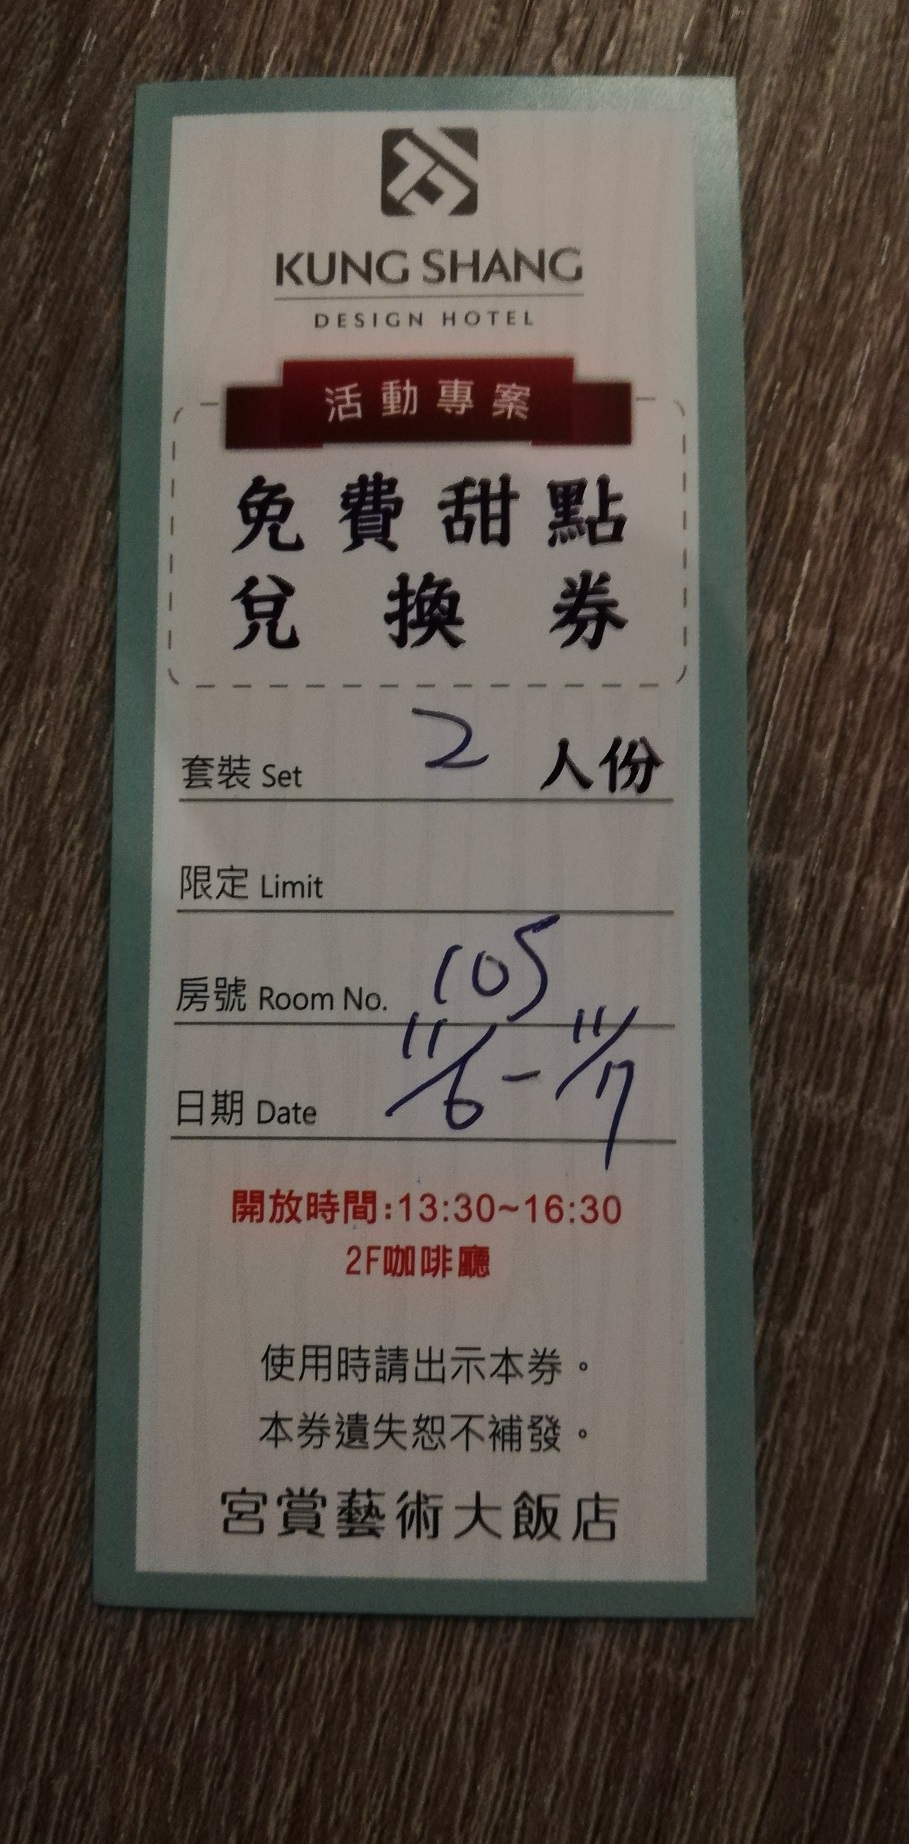 KUNG SHANG
DESIGN HOTEL
活動專案
免費甜點
兌換券
套裝 Set 2 人份
限定 Limit
房號 Room No. 105
日期 Date 11/6-11/7
開放時間:13:30~16:30
2F咖啡廳
使用時請出示本券。
本券遺失恕不補發。
宮賞藝術大飯店